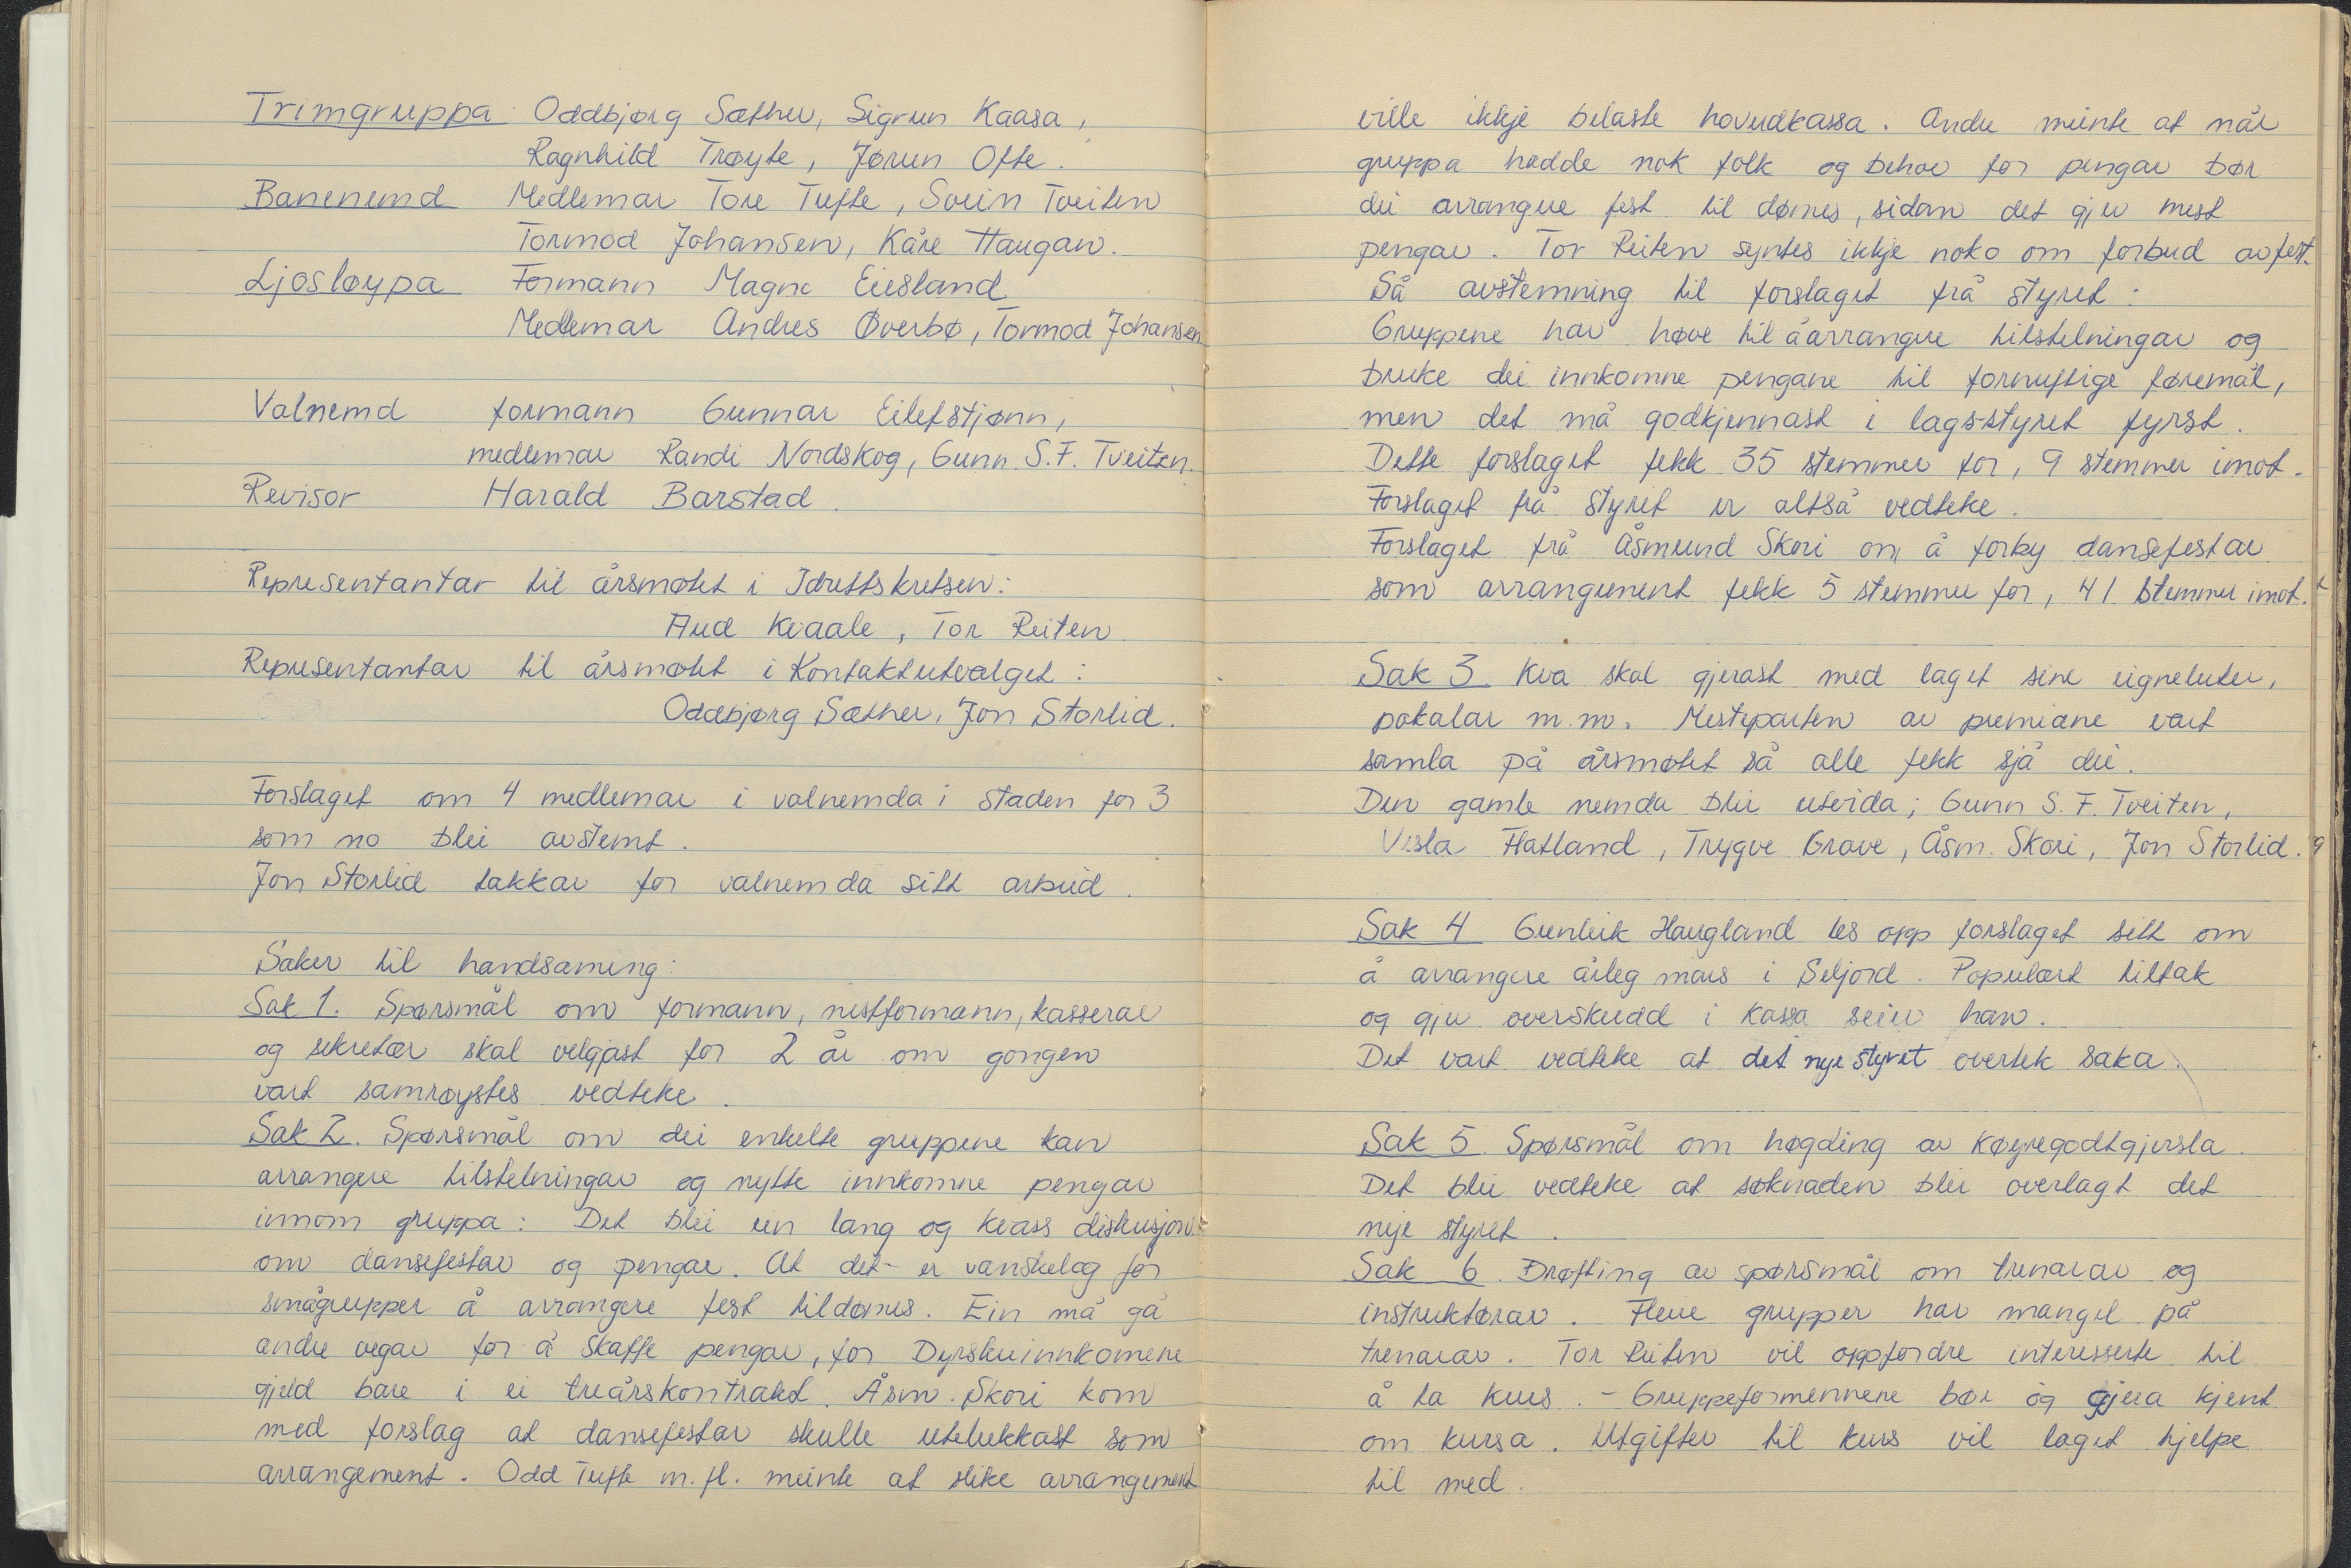 Trimgruppa Oddbjørg Sæther, Sigrun Kaasa,
Ragnhild Trøyte, Jørun Ofte.
Banenemd Medlemar Tore Tufte, Svein Tveiten
Tormod Johansen, Kåre Haugan.
Ljosløypa Formann Magne Eiesland
Medlemar Andres Øverbø, Tormod Johansen
Valnemd formann Gunnar Eilefstjønn,
medlemar Randi Nordskog, Gunn S.F. Tveiten.
Revisor Harald Barstad.
Representantar til årsmøtet i Idrettskretsen:
Aud Kvaale, Tor Reiten
Representantar til årsmøtet i Kontaktutvalget:
Oddbjørg Sæther, Jon Storlid.
Forslaget om 4 medlemar i valnemda i staden for 3
som no blei avstemt.
Jon Storlid takkar for valnemda sitt arbeid.
Saker til handsaming:
Sak 1. Spørsmål om formann, nestformann, kasserar
og sekretær skal velgjast for 2 år om gongen
vart samrøystes vedteke.
Sak 2. Spørsmål om dei enkelte gruppene kan
arrangere tilstelningar og nytte innkomne pengar
innom gruppa: Det blei ein lang og kvass diskusjon
om dansefestar og pengar. At det er vanskeleg for
smågrupper å arrangere fest tildømes. Ein må gå
andre vegar for å skaffe pengar, for Dyrskuinnkomene
gjeld bare i ei treårskontrakt. Åsm. Skori kom
med forslag at dansefestar skulle utelukkast som
arrangement. Odd Tufte m.fl. meinte at slike arrangement
ville ikkje belaste hovudkassa. Andre meinte at når
gruppa hadde nok folk og behov for pengar bør
dei arrangere fest til dømes, sidan det gjev mest
pengar. Tor Reiten syntes ikkje noko om forbud av fest.
Så avstemning til forslaget frå styret:
Gruppene har høve til å arrangere tilstelningar og
bruke dei innkomne pengane til fornuftige føremål,
men det må godkjennast i lags-styret fyrst.
Dette forslaget fekk 35 stemmer for, 9 stemmer imot.
Forslaget frå styret er altså vedteke.
Forslaget frå Åsmund Skori om å forby dansefestar
som arrangement fekk 5 stemmer for, 41 stemmer imot.
Sak 3 Kva skal gjerast med laget sine eigneluter,
pokalar m.m. Mesteparten av premiane vart
samla på årsmøtet så alle fekk sjå dei.
Den gamle nemda blir utvida; Gunn S.F. Tveiten,
Vesla Flatland, Trygve Grave, Åsm. Skori, Jon Storlid.
Sak 4 Gunleik Haugland les opp forslaget sitt om
å arrangere årleg mars i Seljord. Populært tiltak
og gjev overskudd i kassa seier han.
Det vart vedteke at det nye styret overtek saka.
Sak 5 Spørsmål om høgding av køyregodtgjersla.
Det blei vedteke at søknaden blir overlagt det
nye styret.
Sak 6. Drøfting av spørsmål om trenarar og
instruktørar. Fleire grupper har mangel på
trenarar. Tor Reiten vil oppfordre interesserte til
å ta kurs. - Gruppeformennene bør òg gjera kjent
om kursa. Utgifter til kurs vil laget hjelpe
til med.